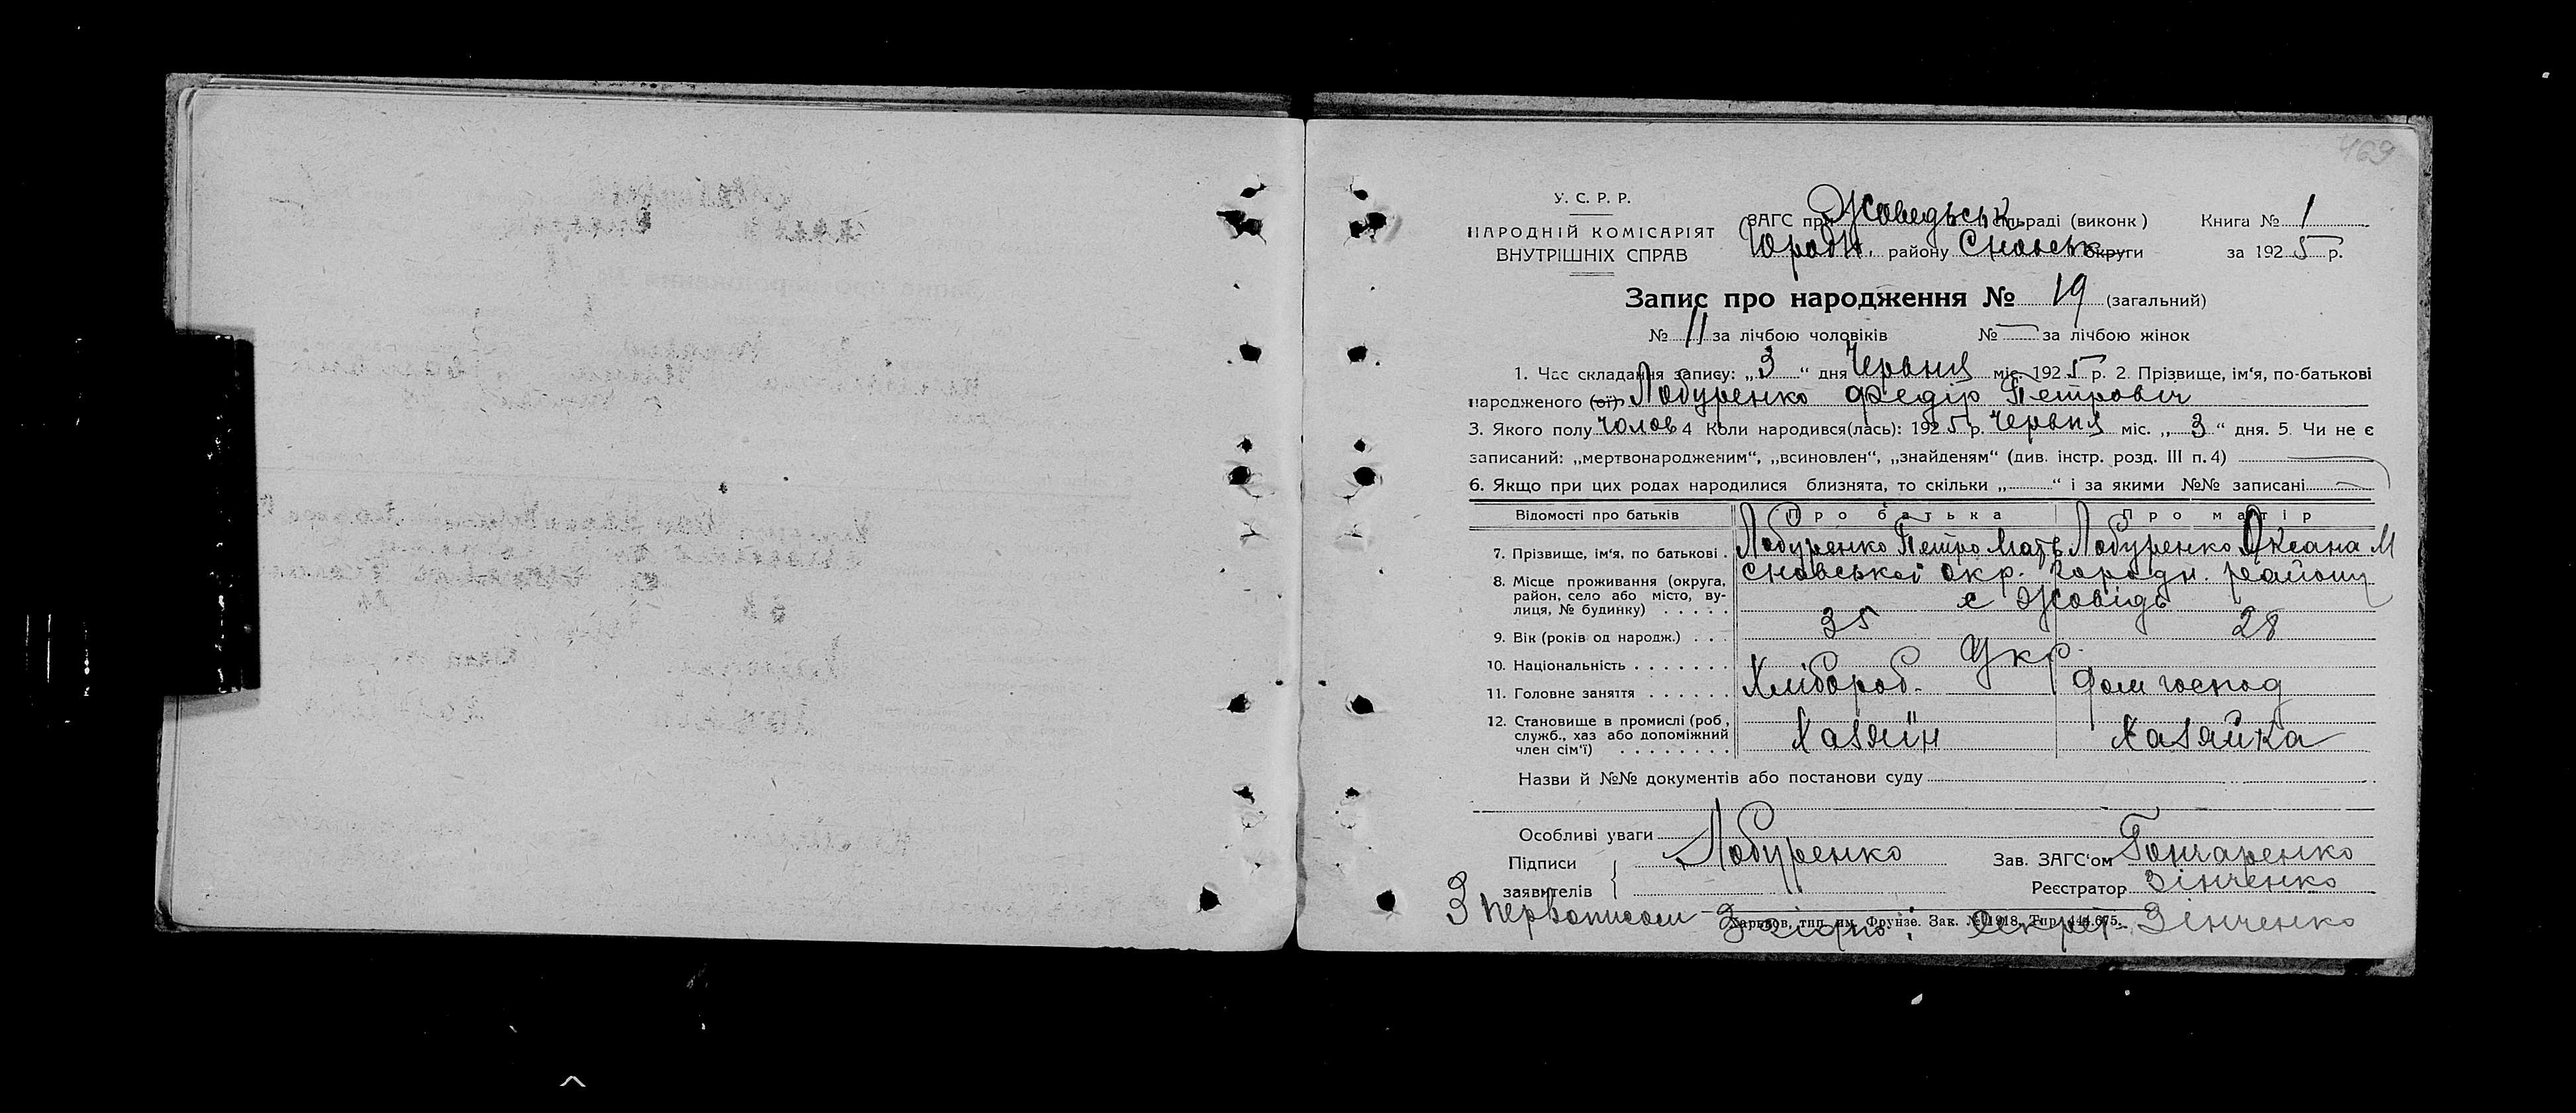 469
У. С. Р. Р.
НАРОДНІЙ КОМІСАРІЯТ
ВНУТРІШНІХ СПРАВ
ЗАГС при Жоведьськ сільраді (виконк)
району Сновськ округи
Книга № 1
за 1925 р.
Запис про народження № 19 (загальний)
№ 11 за лічбою чоловіків № — за лічбою жінок
1. Час складання запису: „3“ дня Червня міс. 1925 р. 2. Прізвище, ім'я, по-батькові
народженого (ої) Лобуренко Федір Петровіч
3. Якого полу чолов 4 Коли народився(лась): 1925 р. Червня міс. „3“ дня. 5. Чи не є
записаний: „мертвонародженим“, „всиновлен“, „знайденям“ (див. інстр. розд. III п. 4)
6. Якщо при цих родах народилися близнята, то скільки „......“ і за якими №№ записані
Відомості про батьків Про батька Про матір
7. Прізвище, ім'я, по батькові . Лобуренко Петро Матв Лобуренко Оксана М
8. Місце проживання (округа, район, село або місто, вулиця, № будинку) . . . . . Сновської окр. Городн. району
с Жовідь
9. Вік (років од народж.) . . . 35 28
10. Національність . . . . . . . Укр.
11. Головне заняття . . . . . . Хлібороб. Дом господ
12. Становище в промислі (роб., служб., хаз або допоміжний член сім'ї) . . . . . . . . Хазяїн Хазяйка
Назви й №№ документів або постанови суду
Особливі уваги
Підписи заявителів Лобуренко
Зав. ЗАГС'ом Гончаренко
Реєстратор Зінченко
Харьков, тип. им. Фрунзе. Зак. № 1918. Тир. 444.675.
З первописом згідно: Секрет. Зінченко